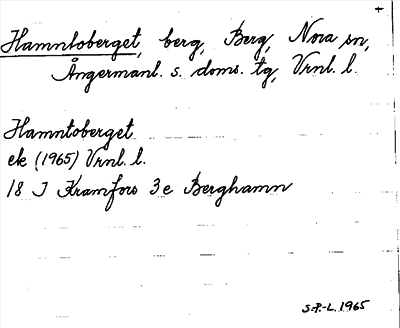 +
Hamntoberget, berg, Berg, Nora sn,
Ångermanl. s. doms. tg, Vrnl. l.
Hamntoberget
ek (1965) Vrnl. l.
18 I Kramfors 3e Berghamn
S.P.-L. 1965